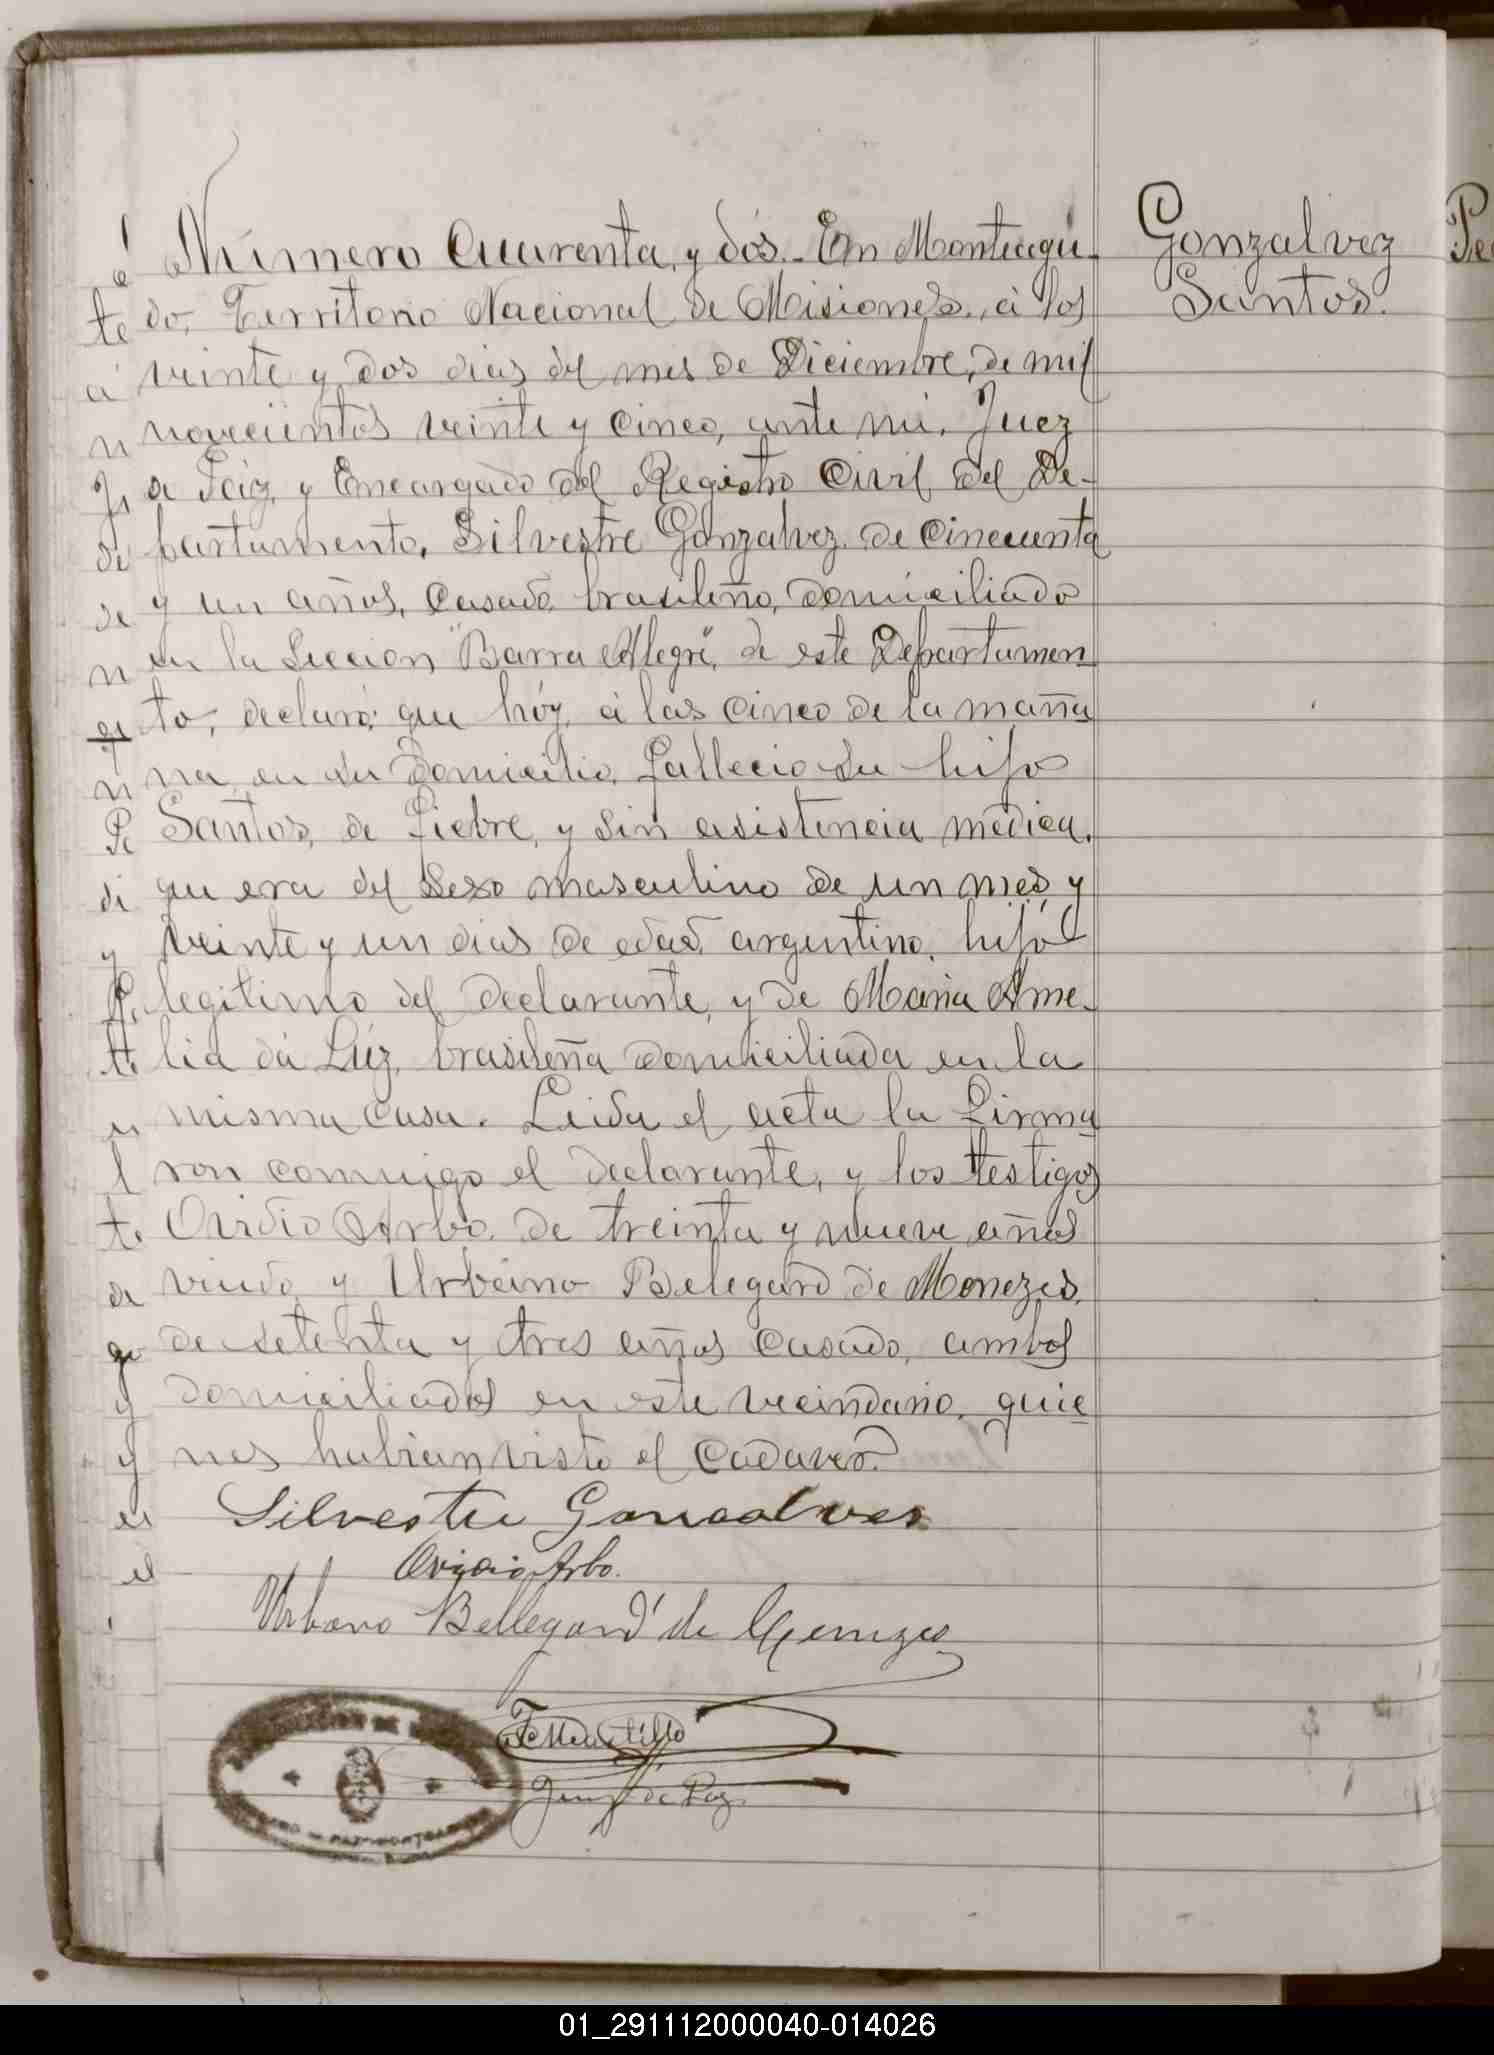 Número Cuarenta y dós.- En Monteagu-
do, Territorio Nacional de Misiones, á los
veinte y dos dias del mes de Diciembre, de mil
novecientos veinte y cinco, ante mi, Juez
de Páz, y Encargado del Registro Civil del De-
partamento, Silvestre Gonzalvez de Cincuenta
y un años, Casado, brasileño, domiciliado
en la Seccion "Barra Alegre", de este Departamen
to, declaró: que hóy, á las cinco de la maña
na, en su Domicilio, fallecio su hijo
Santos, de fiebre, y sin asistencia médica,
que era del Sexo masculino de un mes, y
veinte y un dias de edad, argentino, hijo
legitimo del declarante, y de Maria Ame-
lia da Lúz, brasileña domiciliada en la
misma casa. Leida el acta la firma
ron conmigo el declarante, y los testigos
Ovidio Arbo, de treinta y nueve años
viudo, y Urbano Belegard de Menezes,
de setenta y tres años casado, ambos
domiciliados en este vecindario, quie
nes habian visto el cadaver.
Silvestre Goncalves
Ovidio Arbo.
Urbano Bellegard de Menezes
Juez de Paz.
Gonzalvez
Santos.
01_291112000040-014026